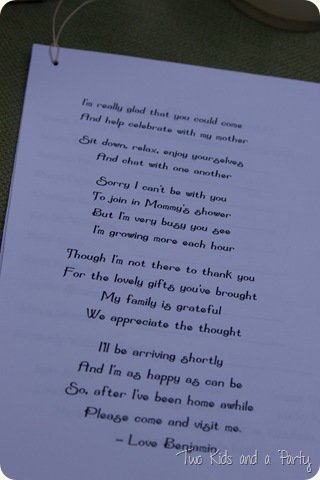 I'm really glad that you could come
And help celebrate with my mother
Sit down, relax, enjoy yourselves
And chat with one another
Sorry I can't be with you
To join in Mommy's shower
But I'm very busy you see
I'm growing more each hour
Though I'm not there to thank you
For the lovely gifts you've brought
My family is grateful
We appreciate the thought
I'll be arriving shortly
And I'm as happy as can be
So, after I've been home awhile
Please come and visit me.
~ Love Benjamin
Two Kids and a Party